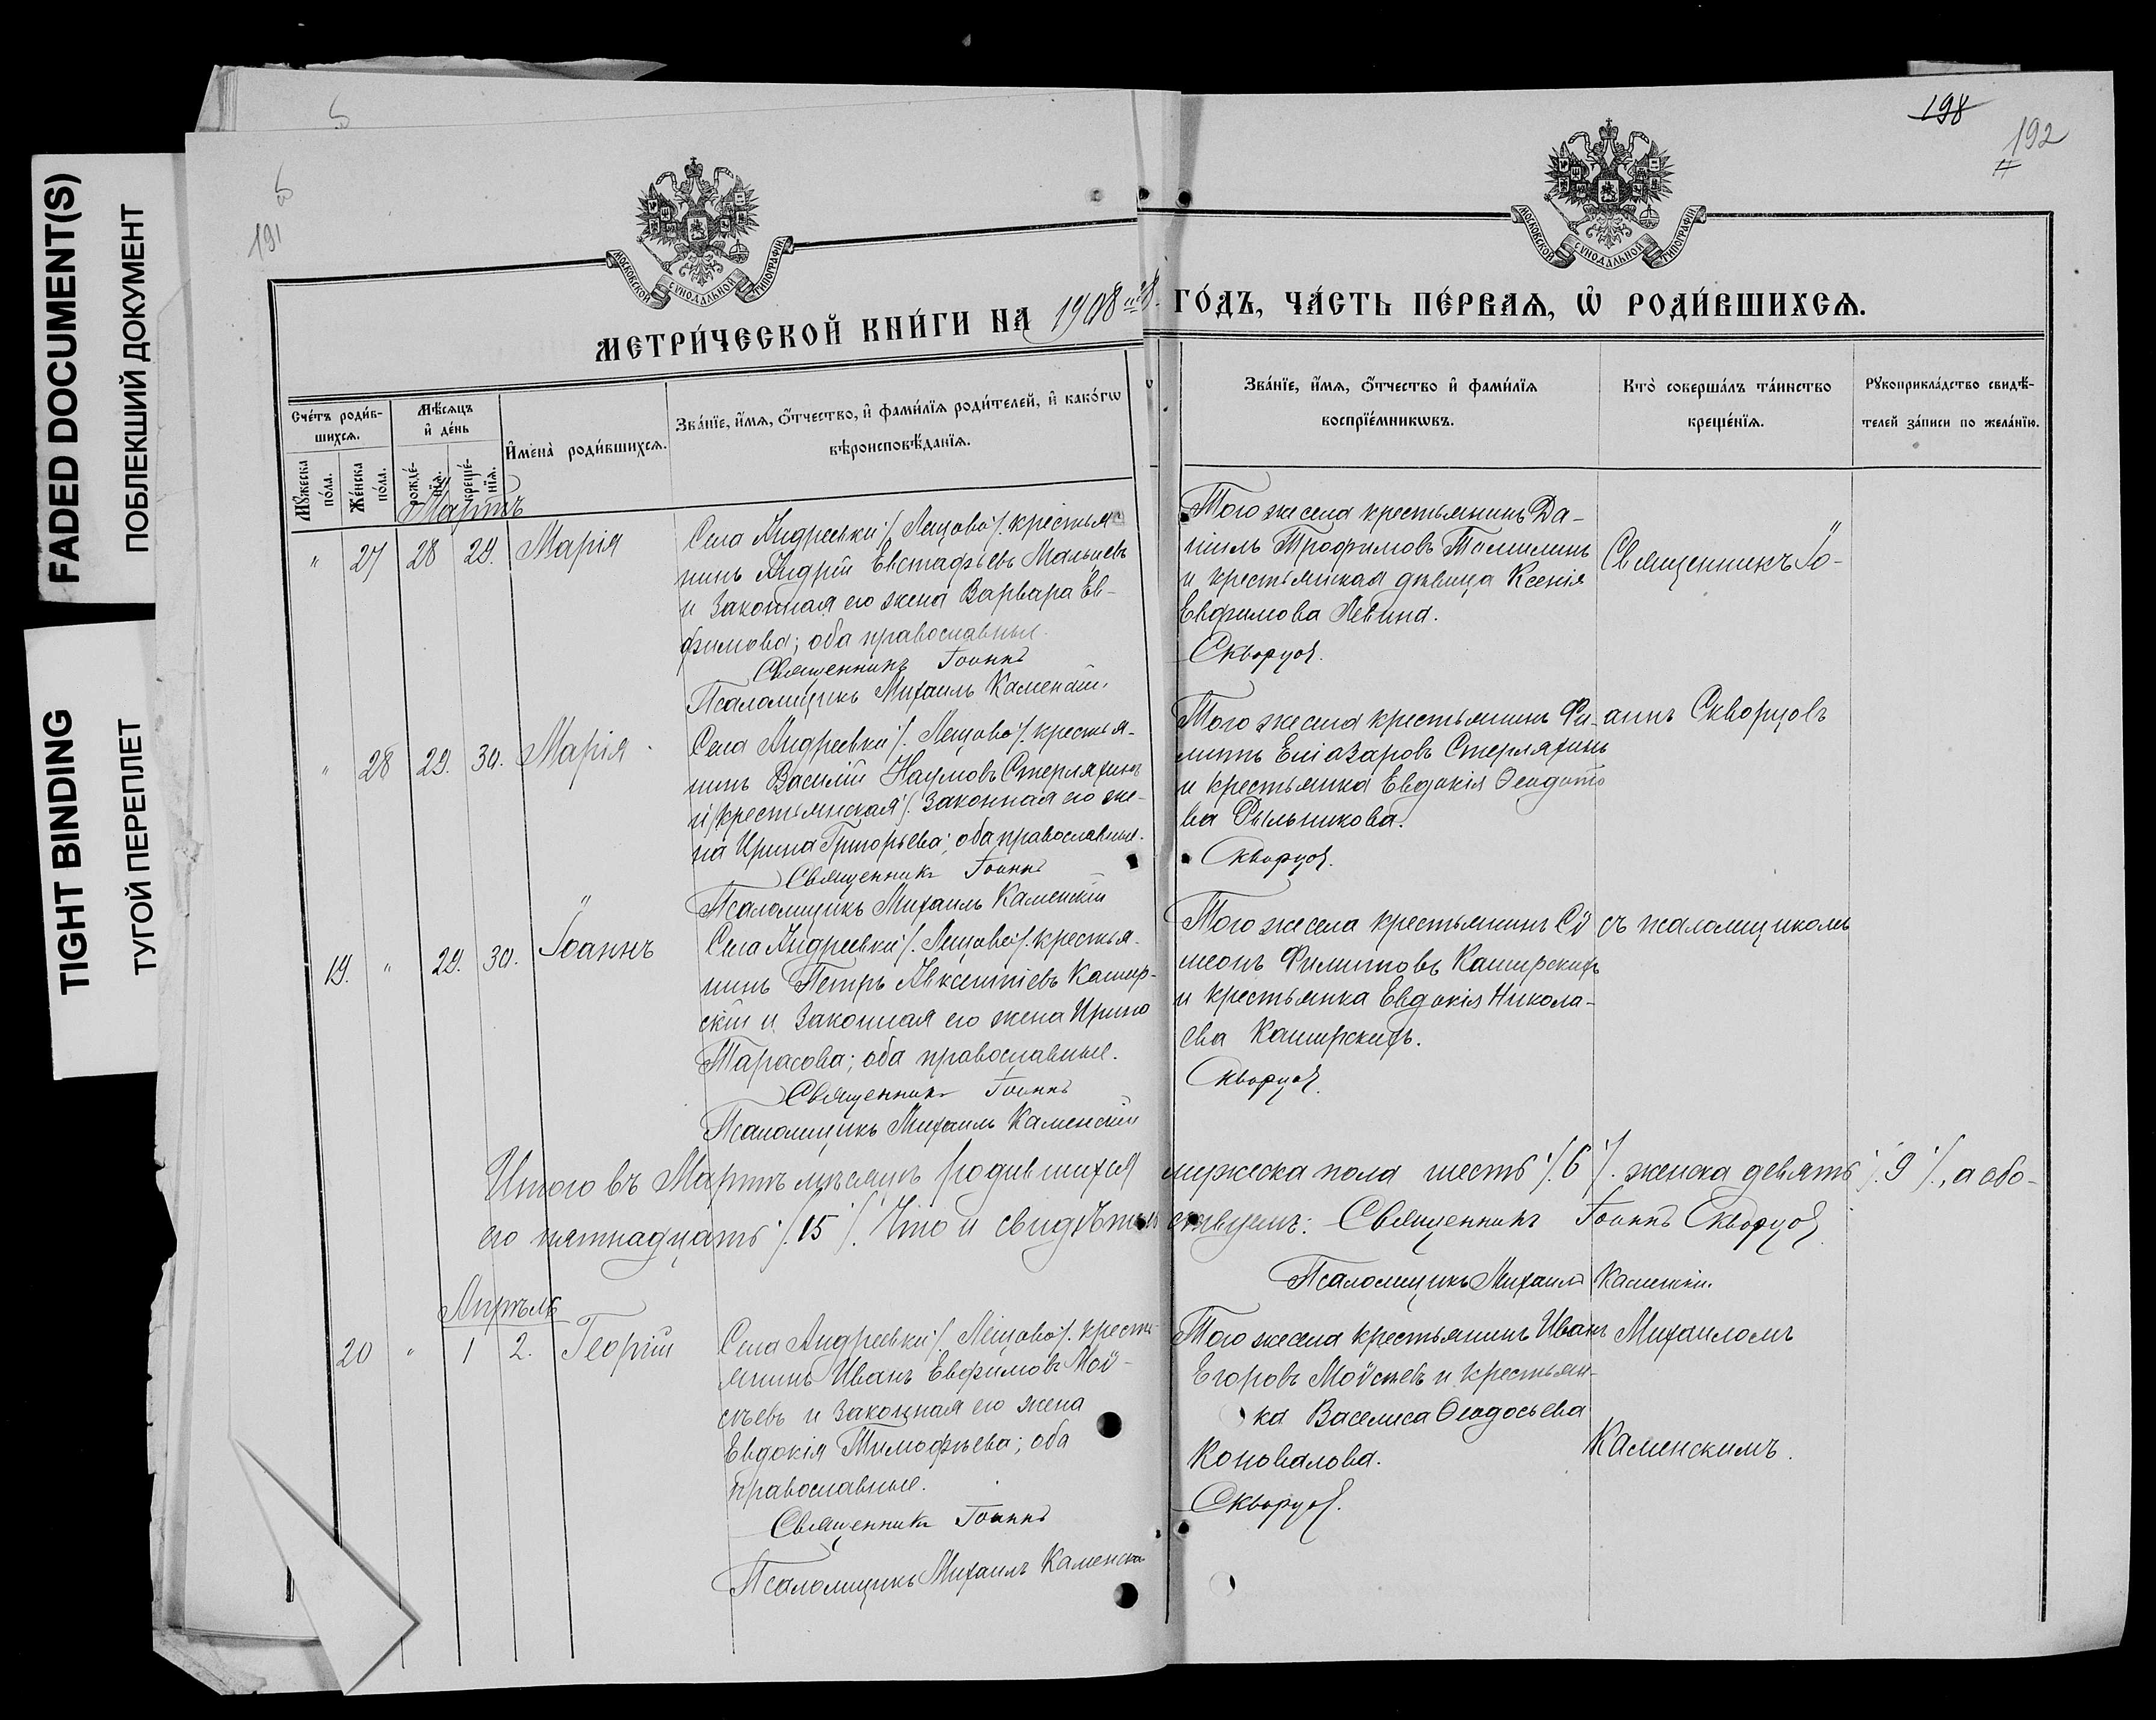 FADED DOCUMENT(S)
ПОБЛЕКШИЙ ДОКУМЕНТ
TIGHT BINDING
ТУГОЙ ПЕРЕПЛЕТ
191
198
192
МОСКОВСКОЙ СѴНОДАЛЬНОЙ ТИПОГРАФІИ
МОСКОВСКОЙ СѴНОДАЛЬНОЙ ТИПОГРАФІИ
МЕТРИ́ЧЕСКОЙ КНИ́ГИ НА 1908 ГО́ДЪ, ЧА́СТЬ ПЕ́РВАЯ, Ѡ҆ РОДИ́ВШИХСЯ.
Сче́тъ роди́в-
шихся.
Мꙋ́жеска по́ла.
Же́нска по́ла.
Мѣ́сяцъ и҆ де́нь
рожде́-нїя.
креще́-нїя.
И҆мена̀ роди́вшихся.
Зва́нїе, и҆́мя, ѻ҆́тчество, и҆ фами́лїя роди́телей, и҆ како́гѡ
вѣроисповѣ́данїя.
Зва́нїе, и҆́мя, ѻ҆́тчество и҆ фами́лїя
воспрїе́мникѡвъ.
Кто̀ соверша́лъ та́инство
креще́нїя.
Рꙋкоприкла́дство свидѣ́-
телей за́писи по жела́нїю.
Мартъ
" 27 28 29. Марія
Села Андреевки /. Лещово /. крестья-
нинъ Андрей Евстафьевъ Мальцевъ
и законная его жена Варвара Ев-
фимова; оба православные.
Священникъ Іоаннъ
Псаломщикъ Михаилъ Каменскій.
Того же села крестьянинъ Да-
ніилъ Трофимовъ Томилинъ
и крестьянская дѣвица Ксенія
Евфимова Левина.
Скворцов.
Священникъ Іо-
" 28 29. 30. Марія
Села Андреевки /. Лещово /. крестья-
нинъ Василій Наумовъ Стерляхинъ
и /крестьянская/. законная его же-
на Ирина Григорьева; оба православные.
Священникъ Іоаннъ
Псаломщикъ Михаилъ Каменскій
Того же села крестьянинъ Фи-
липъ Еліазаровъ Стерляхинъ
и крестьянка Евдокія Ѳеодото
ва Рыльшикова.
Скворцов.
аннъ Скворцовъ
19. " 29. 30. Іоаннъ
Села Андреевки /. Лещово /. крестья-
нинъ Петръ Авксентіевъ Кашир-
скій и законная его жена Ирина
Тарасова; оба православные.
Священникъ Іоаннъ
Псаломщикъ Михаилъ Каменскій
Того же села крестьянинъ Сѵ
меонъ Филиповъ Каширскихъ
и крестьянка Евдокія Никола-
ева Каширскихъ.
Скворцов.
съ псаломщикомъ
Итого въ Мартѣ мѣсяцѣ родившихся мужеска пола шесть /. 6 /. женска девять /. 9 /., а обо-
его пятнадцать /. 15 /. Что и свидѣтельствуемъ: Священникъ Іоаннъ Скворцов.
Псаломщикъ Михаилъ Каменскій.
Апрѣль
20 " 1 2. Георгій
Села Андреевки /. Лещово /. кресть-
янинъ Иванъ Евфимовъ Мой-
сѣевъ и законная его жена
Евдокія Тимофеева; оба
православные.
Священникъ Іоаннъ
Псаломщикъ Михаилъ Каменскій
Того же села крестьянинъ Иванъ
Егоровъ Мойсѣевъ и крестьян-
ка Васелиса Ѳеодосьева
Коновалова.
Скворцов.
Михаиломъ
Каменскимъ.